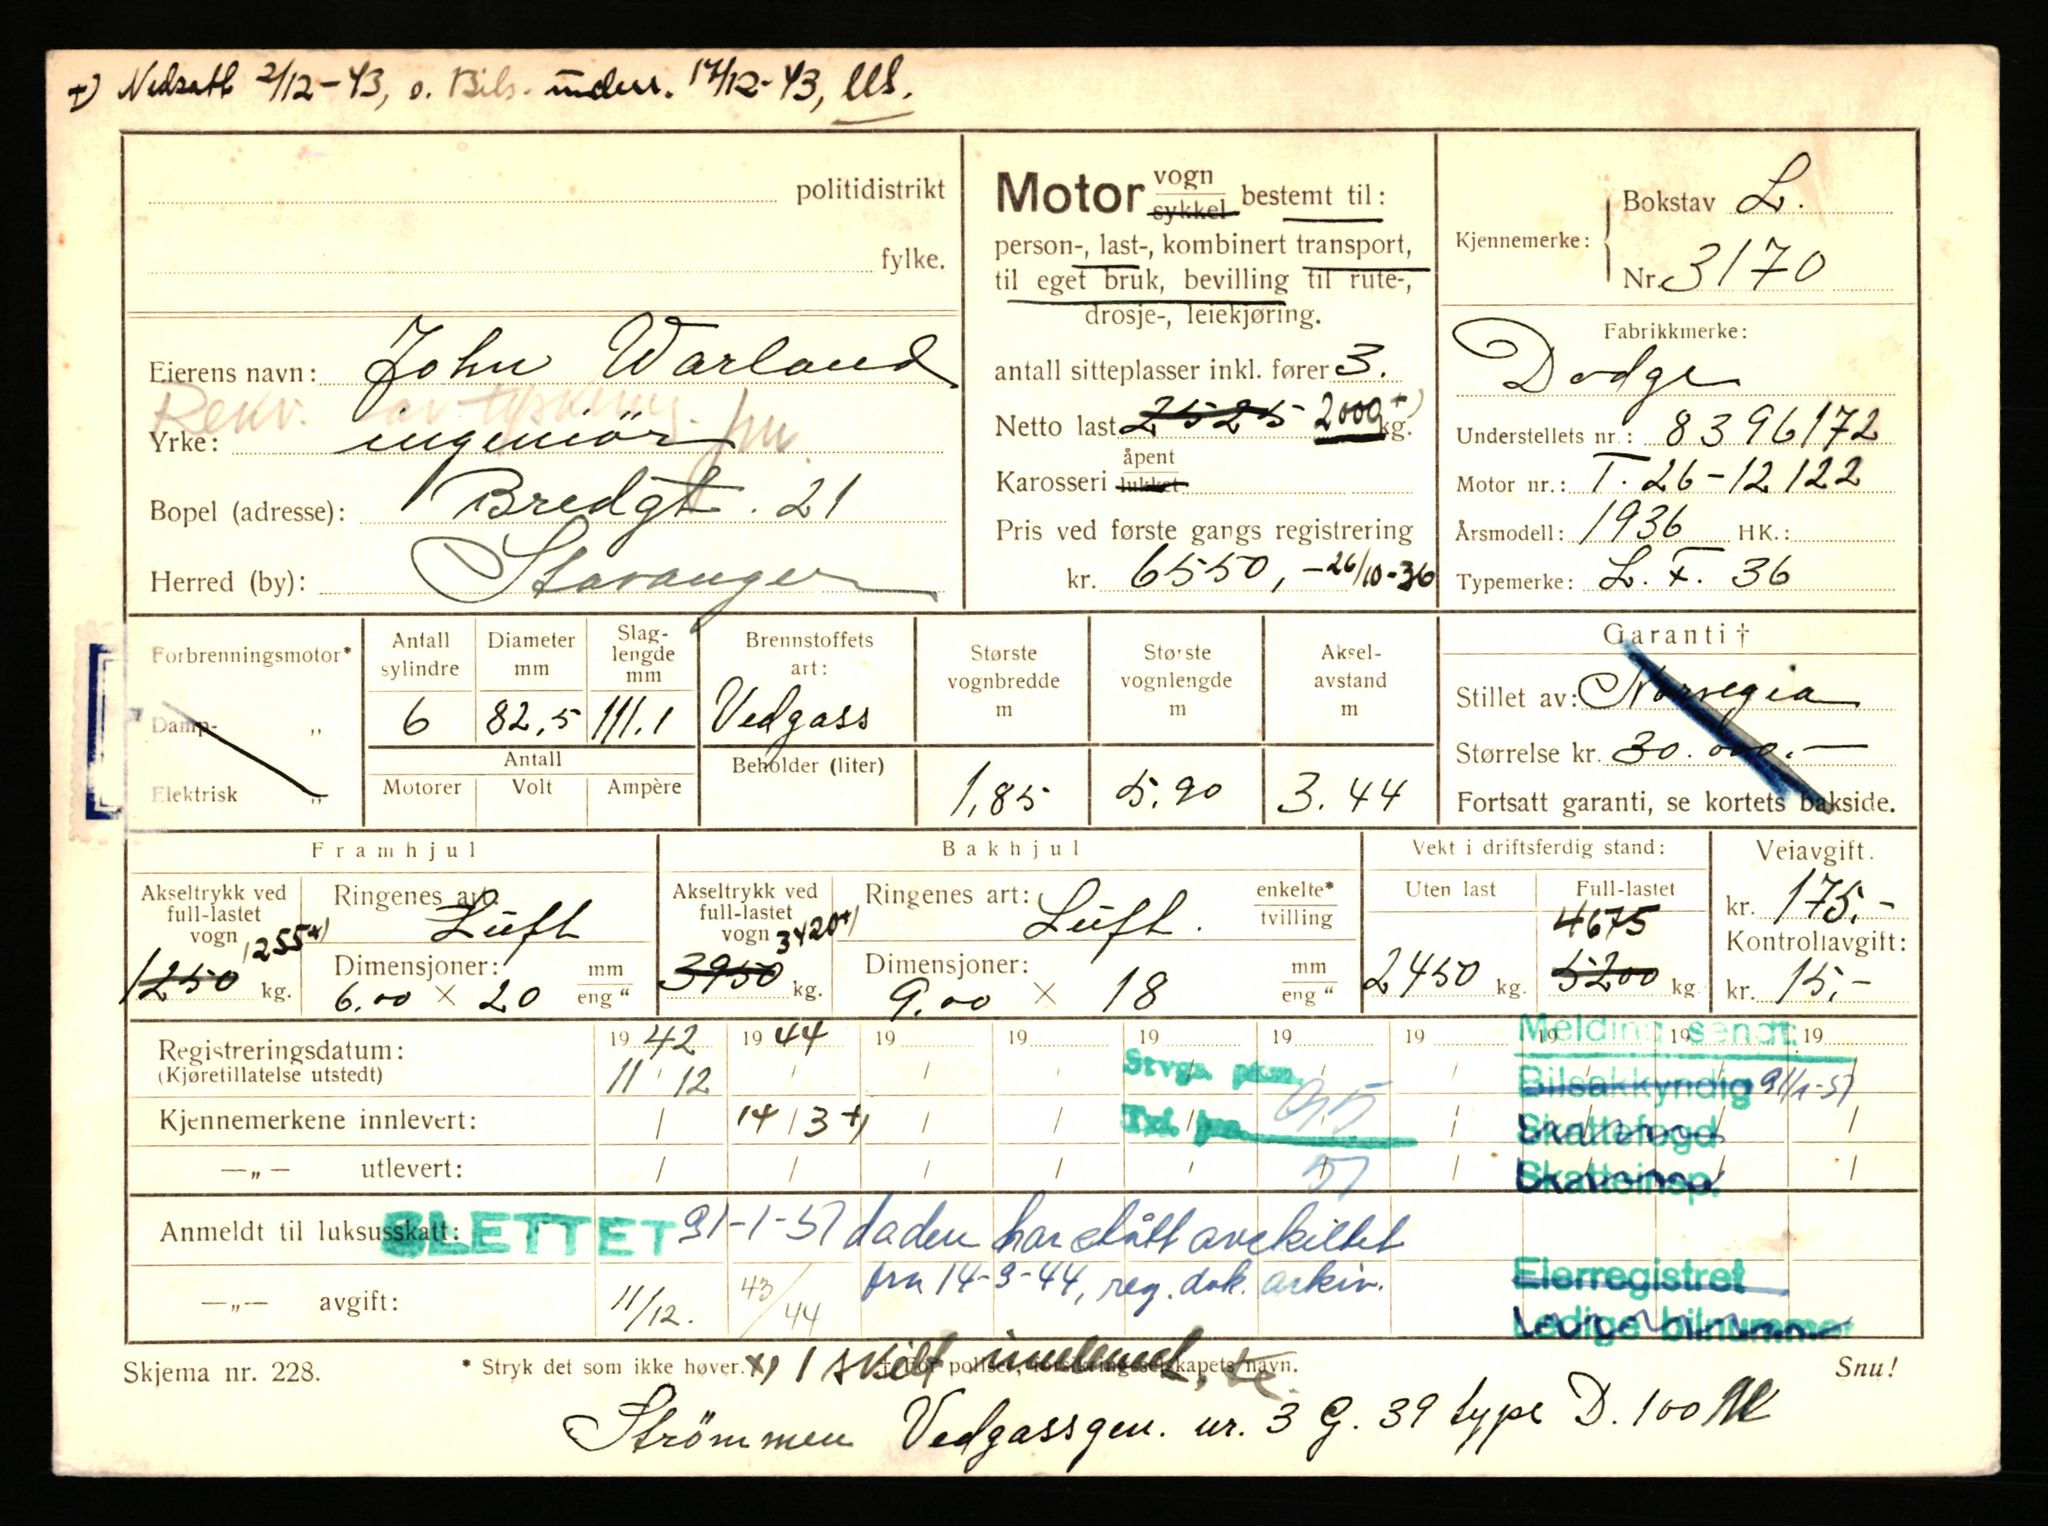 +) Nedsatt 2/12-43, o. Bils. underr. 17/12-43,
politidistrikt
fylke.
Eierens navn: John Warland
Rekv. av tyskerne.
Yrke: ingeniör
Bopel (adresse): Bredgt. 21
Herred (by): Stavanger
Motor vogn sykkel bestemt til:
person-, last-, kombinert transport,
til eget bruk, bevilling til rute-,
drosje-, leiekjøring.
antall sitteplasser inkl. fører 3.
Netto last 2525 2000 +) kg.
Karosseri åpent lukket
Pris ved første gangs registrering
kr. 6550,- 26/10-36
Bokstav L.
Kjennemerke:
Nr. 3170
Fabrikkmerke:
Dodge
Understellets nr.: 8396172
Motor nr.: T. 26-12122
Årsmodell: 1936 HK.:
Typemerke: L.F. 36
Forbrenningsmotor*
Damp- „
Elektrisk „
Antall sylindre
6
Diameter mm
82,5
Slaglengde mm
111.1
Antall
Motorer Volt Ampère
Brennstoffets art:
Vedgass
Beholder (liter)
Største vognbredde m
1,85
Største vognlengde m
5.90
Akselavstand m
3.44
Garanti †
Stillet av: Norvegia
Størrelse kr. 30.000.-
Fortsatt garanti, se kortets bakside.
Framhjul
Akseltrykk ved full-lastet vogn 1255+)
1250 kg.
Ringenes art: Luft
Dimensjoner: mm eng "
6.00 × 20
Bakhjul
Akseltrykk ved full-lastet vogn 3420+)
3950 kg.
Ringenes art: Luft. enkelte* tvilling
Dimensjoner: mm eng "
9.00 × 18
Vekt i driftsferdig stand:
Uten last Full-lastet
4675
2450 kg. 5200 kg.
Veiavgift.
kr. 175.-
Kontrollavgift:
kr. 15.-
Registreringsdatum: 19 42 19 44 19 19 19 19 19 19 19 19
(Kjøretillatelse utstedt) 11 / 12
Kjennemerkene innlevert: 14 / 3 +)
—„— utlevert:
Stvgr. pkm.
Txf. jnr. 95
57
Melding sendt:
Bilsakkyndig 31/1-57
Skattefogd
Skatteinsp.
Eierregistret
Ledige bilnummer
Anmeldt til luksusskatt: SLETTET 31-1-57 daden har stått avskiltet
fra 14-3-44, reg. dok. arkiv.
—„— avgift: 11/12. 43/44
Skjema nr. 228.
* Stryk det som ikke høver.
x) 1 skilt innlevert,
† For poliser, forsikringsselskapets navn.
Snu!
Strömmen Vedgassgen. nr. 3 G. 39 type D. 100